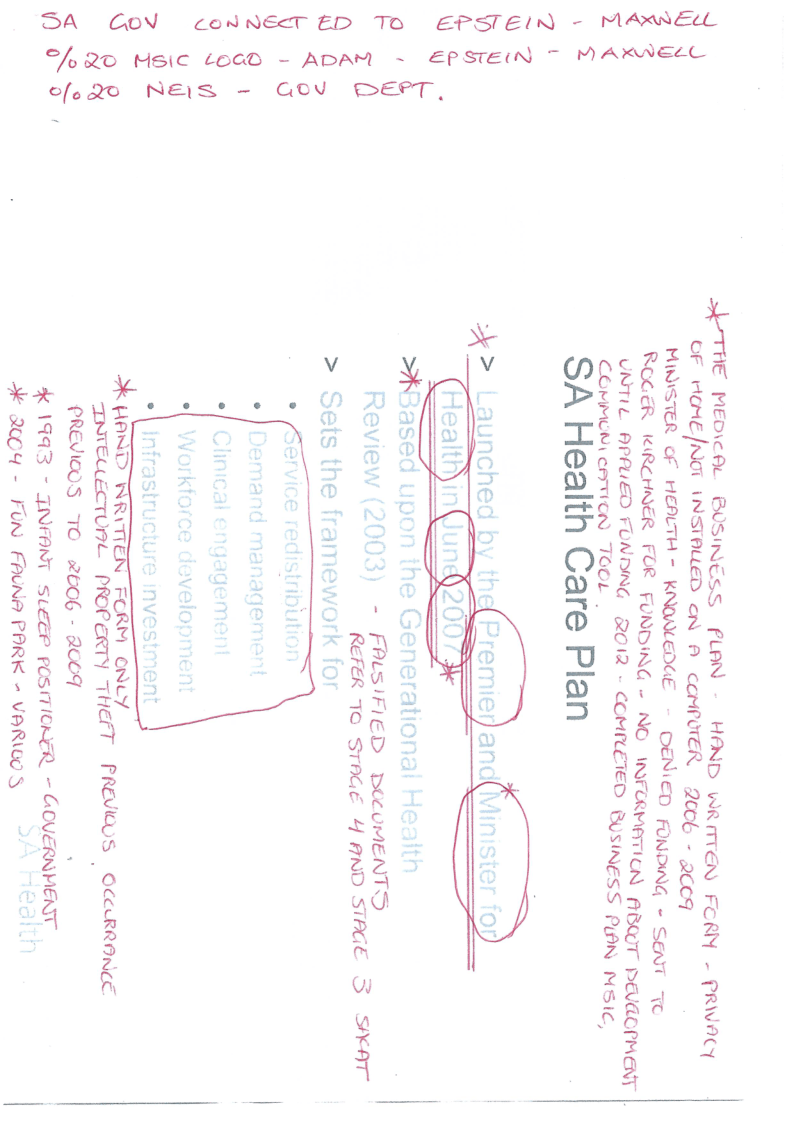 SA GOV CONNECTED TO EPSTEIN - MAXWELL
%20 MSIC LOGO - ADAM - EPSTEIN - MAXWELL
%20 NEIS - GOV DEPT.
* THE MEDICAL BUSINESS PLAN - HAND WRITTEN FORM - PRIVACY
OF HOME/NOT INSTALLED ON A COMPUTER 2006 - 2009
MINISTER OF HEALTH - KNOWLEDGE - DENIED FUNDING - SENT TO
ROGER KIRCHNER FOR FUNDING - NO INFORMATION ABOUT DEVELOPMENT
UNTIL APPLIED FUNDING 2012 - COMPLETED BUSINESS PLAN MSIC,
COMMUNICATION TOOL.
SA Health Care Plan
* > Launched by the Premier and Minister for
Health in June 2007
> * Based upon the Generational Health
Review (2003) - FALSIFIED DOCUMENTS
REFER TO STAGE 4 AND STAGE 3 SACAT
> Sets the framework for
• Service redistribution
• Demand management
• Clinical engagement
• Workforce development
• Infrastructure investment
* HAND WRITTEN FORM ONLY
INTELLECTUAL PROPERTY THEFT PREVIOUS OCCURRANCE
PREVIOUS TO 2006 - 2009
* 1993 - INFANT SLEEP POSITIONER - GOVERNMENT
* 2004 - FUN FAUNA PARK - VARIOUS
SA Health